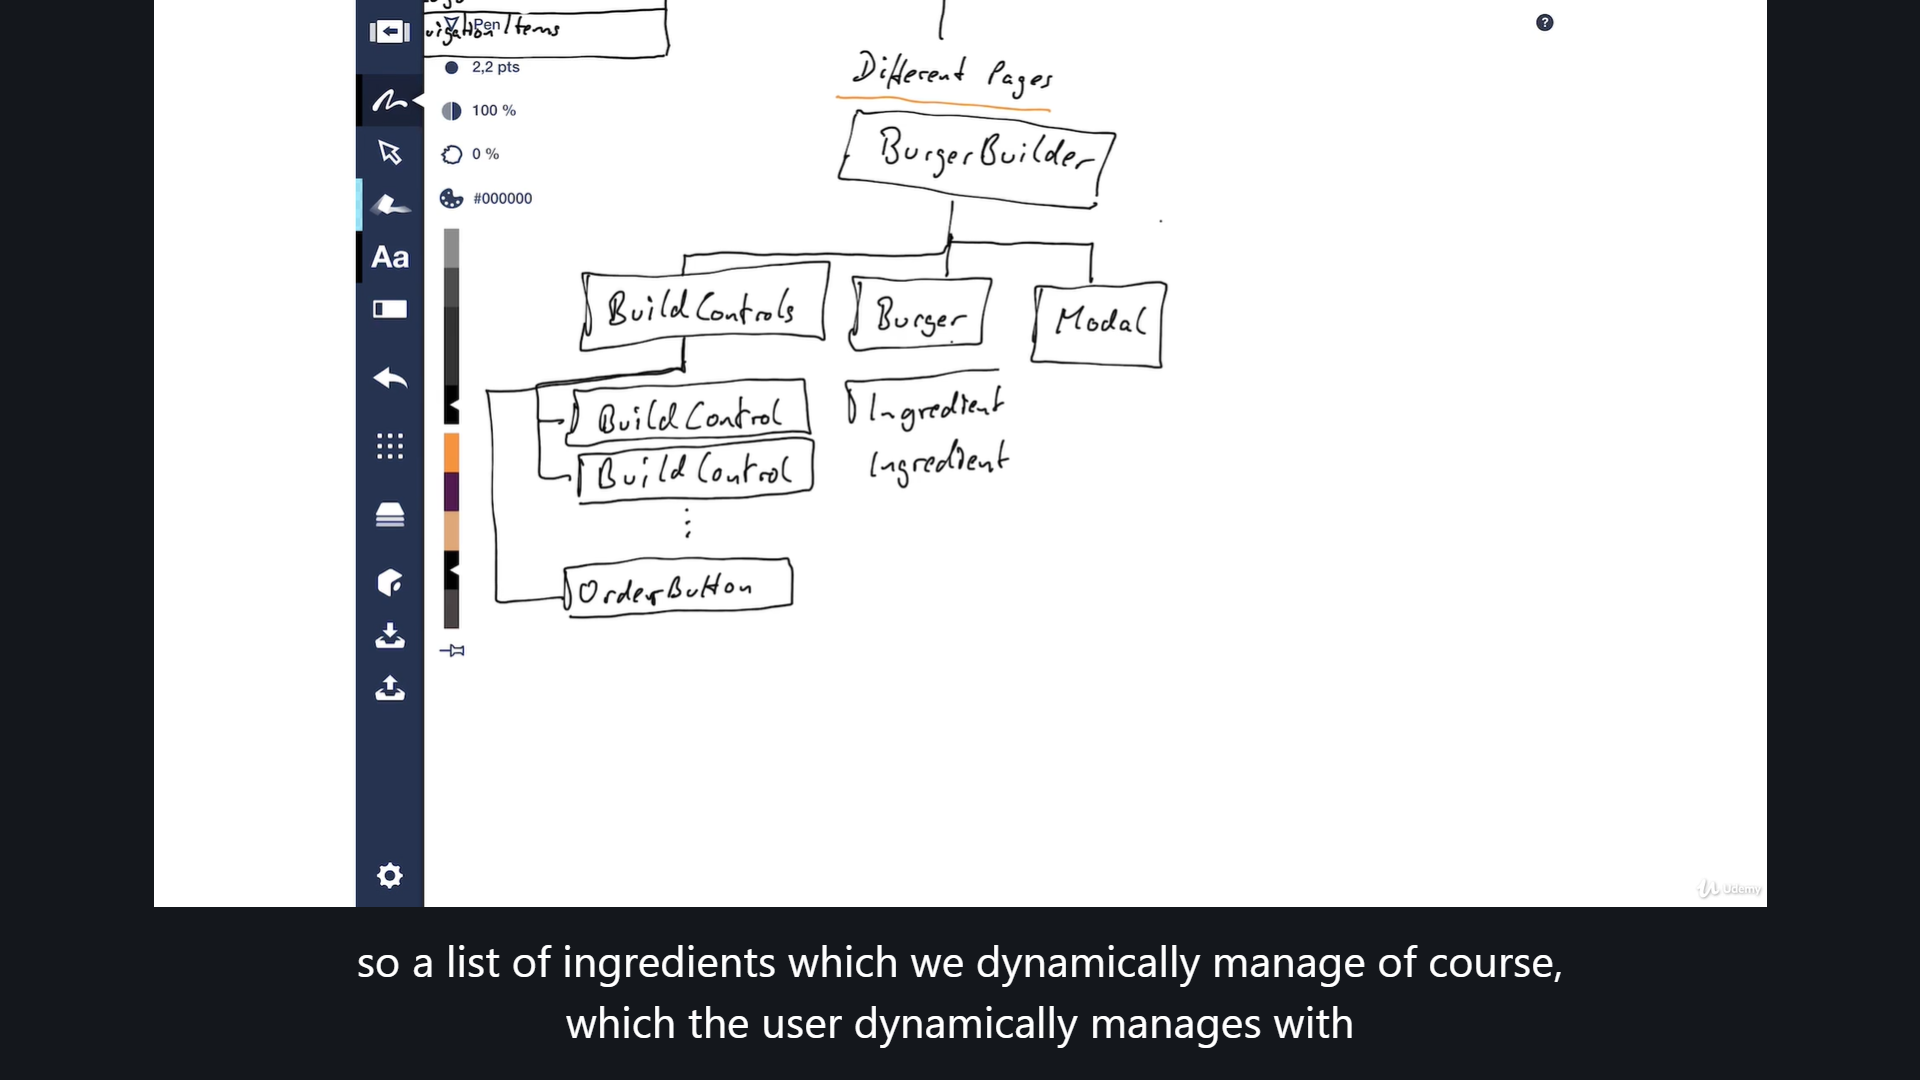 Pen
vigation Items
2,2 pts
100 %
0 %
#000000
Aa
?
Different Pages
BurgerBuilder
BuildControls
Burger
Modal
BuildControl
BuildControl
⋮
Ingredient
Ingredient
OrderButton
Udemy
so a list of ingredients which we dynamically manage of course,
which the user dynamically manages with